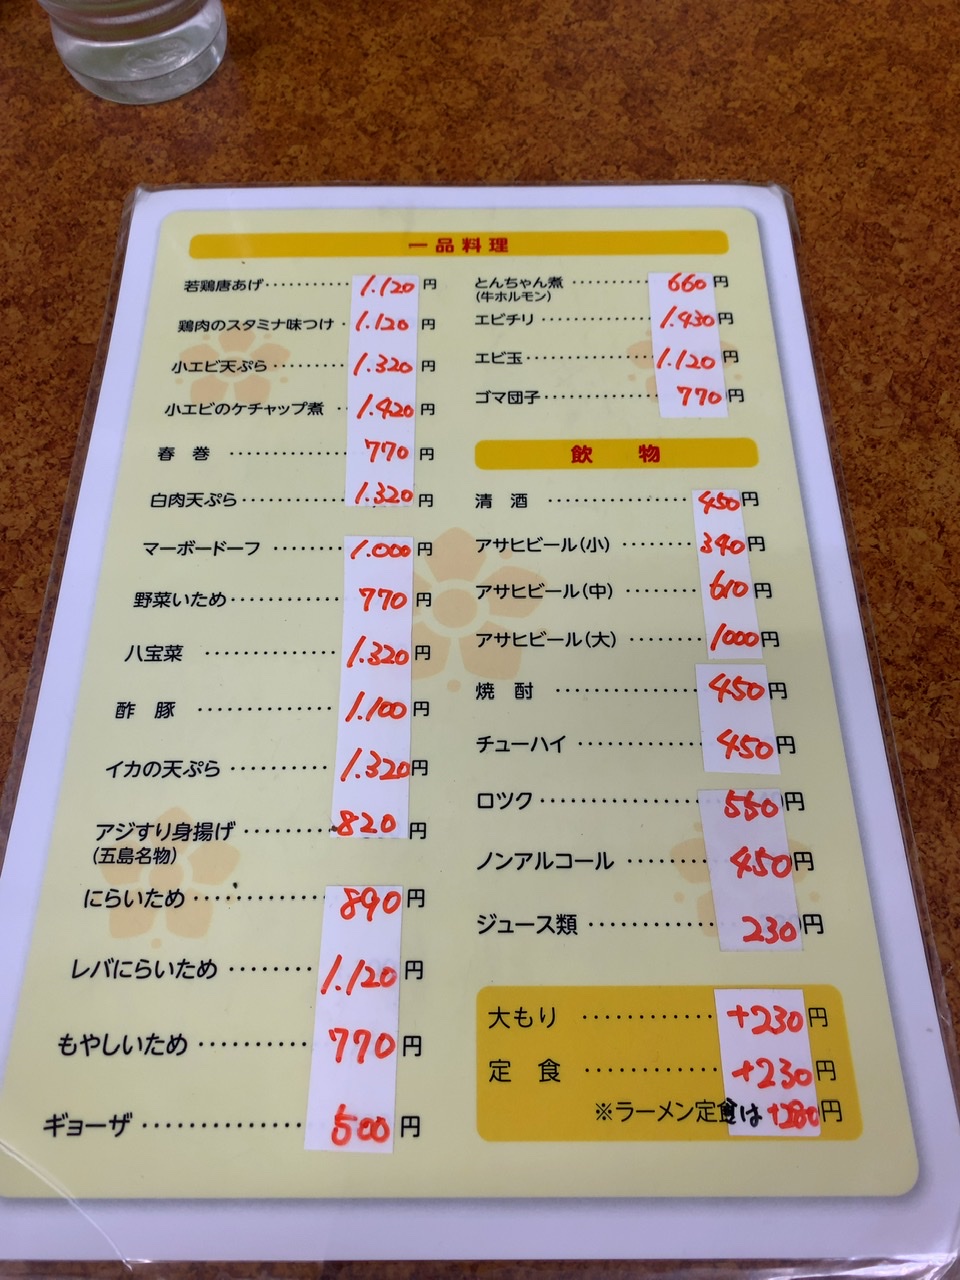 一品料理
若鶏唐あげ・・・・・・・・・・1.120円
鶏肉のスタミナ味つけ・1.120円
小エビ天ぷら・・・・・・・・・1.320円
小エビのケチャップ煮・・1.420円
春巻・・・・・・・・・・・・770円
白肉天ぷら・・・・・・・・・・・1.320円
マーボードーフ・・・・・・・・1.000円
野菜いため・・・・・・・・・・・770円
八宝菜・・・・・・・・・・・・・1.320円
酢豚・・・・・・・・・・・・・1.100円
イカの天ぷら・・・・・・・・・・1.320円
アジすり身揚げ・・・・・・・・・820円
(五島名物)
にらいため・・・・・・・・・・・890円
レバにらいため・・・・・・・・1.120円
もやしいため・・・・・・・・・・770円
ギョーザ・・・・・・・・・・・・・500円
とんちゃん煮・・・・・・・・・660円
(牛ホルモン)
エビチリ・・・・・・・・・・・・・1.430円
エビ玉・・・・・・・・・・・・・・1.120円
ゴマ団子・・・・・・・・・・・・・770円
飲物
清酒・・・・・・・・・・・・・・450円
アサヒビール(小)・・・・・・・・340円
アサヒビール(中)・・・・・・・・610円
アサヒビール(大)・・・・・・・・1000円
焼酎・・・・・・・・・・・・・・450円
チューハイ・・・・・・・・・・・・450円
ロック・・・・・・・・・・・・・・・550円
ノンアルコール・・・・・・・・450円
ジュース類・・・・・・・・・・・・230円
大もり・・・・・・・・・・・・+230円
定食・・・・・・・・・・・・+230円
※ラーメン定食は+280円